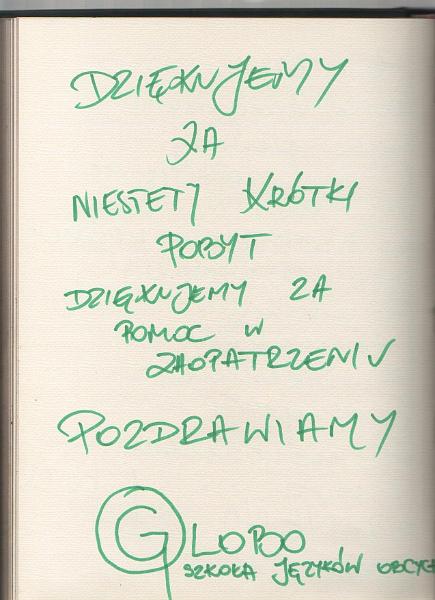 DZIĘKUJEMY
ZA
NIESTETY KRÓTKI
POBYT
DZIĘKUJEMY ZA
POMOC W
ZAOPATRZENIU
POZDRAWIAMY
GLOBO
SZKOŁA JĘZYKÓW OBCYCH